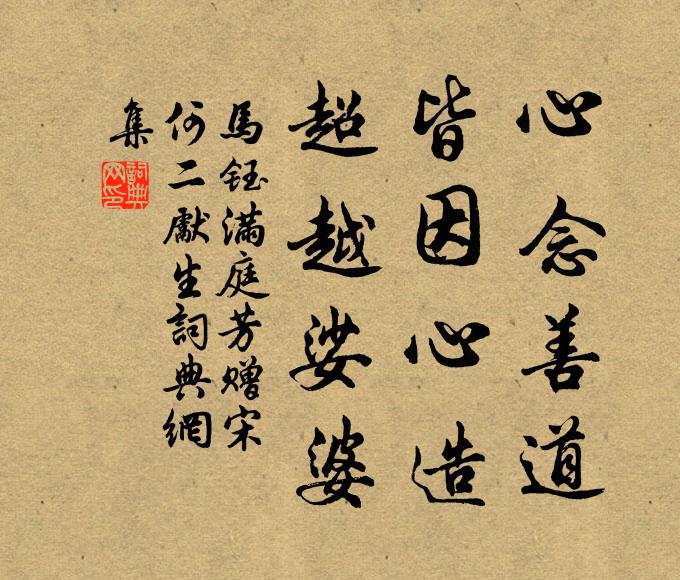 心念善道
皆因心造
超越娑婆
馬鈺滿庭芳赠宋
何二獻生詞典網
集
詞典网印